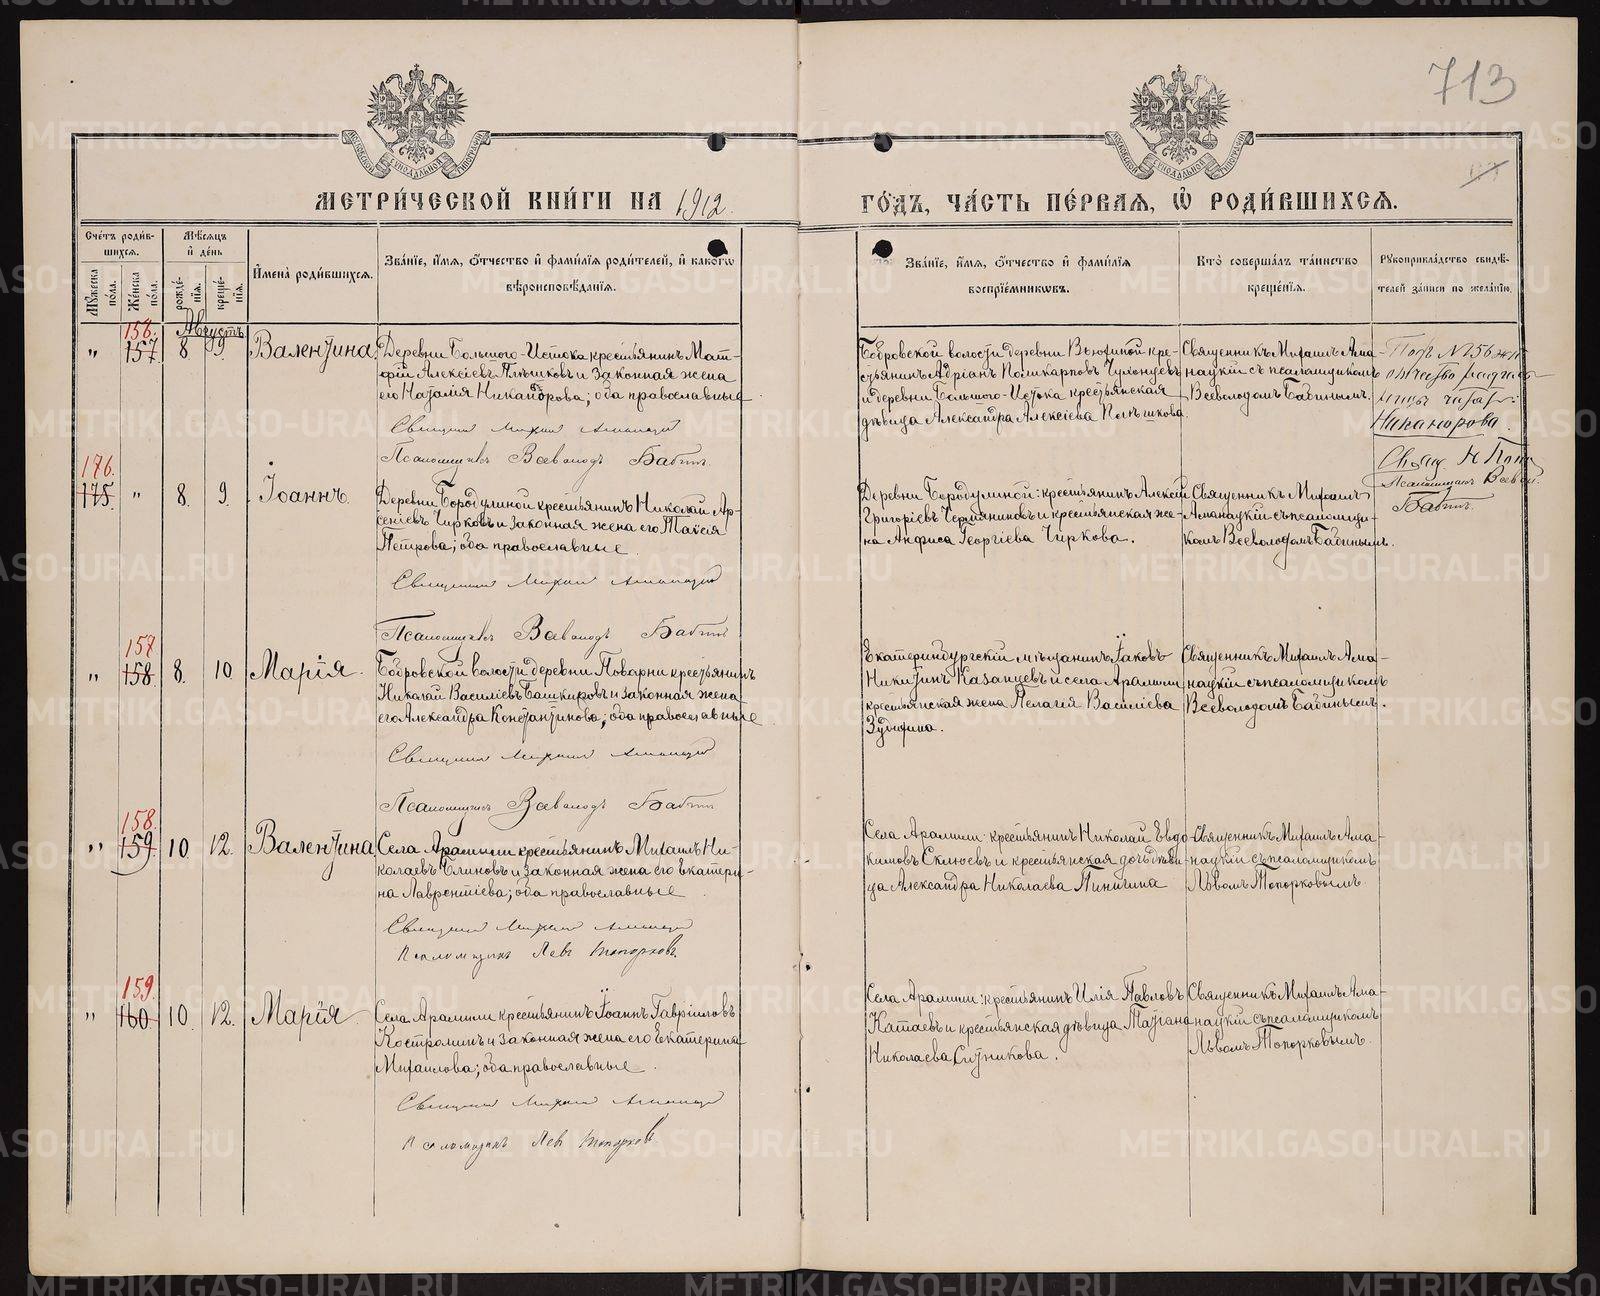 713
МЕТРИ́ЧЕСКОЙ КНИ́ГИ НА 1912.
ГО́ДЪ, ЧА́СТЬ ПЕ́РВАЯ, Ѿ РОДИ́ВШИХСЯ.
Сче́тъ роди́вшихся.
Мꙋ́жеска по́ла.
Же́нска по́ла.
Мѣ́сяцъ и де́нь
рожде́нїя.
креще́нїя.
Имена̀ роди́вшихся.
Зва́нїе, и́мя, о́тчество и фами́лїя роди́телей, и како́гѡ
вѣроисповѣ́данїя.
Зва́нїе, и́мя, о́тчество и фами́лїя
воспрїе́мникѡвъ.
Кто̀ соверша́лъ та́инство
креще́нїя.
Рꙋкоприкла́дство свидѣ́-
телей за́писи по жела́нїю.
Августъ
156.
" 157. 8 9. Валентина.
Деревни Большого-Истока крестьянинъ Мат-
фiй Алексiевъ Плѣшковъ и законная жена
его Наталiя Никанорова; оба православные.
Священник Михаил
Псаломщикъ Всеволодъ Бабинъ.
Бобровской волости деревни Вьюхиной кре-
стьянинъ Адрiанъ Поликарповъ
и деревни Большого-Истока крестьянская
дѣвица Александра Алексiева Плѣшкова.
Священникъ Михаилъ Ама-
наукiй съ псаломщикомъ
Всеволодомъ Бабинымъ.
№ 156
отчество
Никанорова.
Свящ. Псаломщикъ
Бабинъ.
176.
175. " 8. 9. Iоаннъ.
Деревни Бородулиной крестьянинъ Николай Ар-
сенiевъ Чирковъ и законная жена его Таисiя
Петрова; оба православные.
Священник Михаил
Псаломщикъ Всеволодъ Бабинъ
Деревни Бородулиной: крестьянинъ Алексiй
Григорiевъ и крестьянская же-
на Анфиса Георгiева Чиркова.
Священникъ Михаилъ
Аманаукiй съ псаломщи-
комъ Всеволодомъ Бабинымъ.
157
" 158. 8. 10 Марiя.
Бобровской волости деревни Поварни крестьянинъ
Николай Василiевъ Башкировъ и законная жена
его Александра Константинова; оба православные
Священник Михаил
Псаломщикъ Всеволодъ Бабинъ
Екатеринбургскiй мѣщанинъ Iаковъ
Никитинъ Казанцевъ и села Арамили
крестьянская жена Пелагiя Василiева
Зубрина.
Священникъ Михаилъ Ама-
наукiй съ псаломщикомъ
Всеволодомъ Бабинымъ.
158.
" 159. 10 12. Валентина.
Села Арамили крестьянинъ Михаилъ Ни-
колаевъ Блиновъ и законная жена его Екатери-
на Лаврентiева; оба православные.
Священник Михаил
Псаломщикъ Левъ Топорковъ.
Села Арамили: крестьянинъ Николай Евдо-
кимовъ и крестьянская дочь дѣви-
ца Александра Николаева Пиничина
Священникъ Михаилъ Ама-
наукiй съ псаломщикомъ
Львомъ Топорковымъ.
159.
" 160. 10. 12. Марiя
Села Арамили крестьянинъ Iоаннъ Гаврiиловъ
Костроминъ и законная жена его Екатерина
Михаилова; оба православные.
Священник Михаил
Псаломщикъ Левъ Топорковъ
Села Арамили: крестьянинъ Илiя Павловъ
Катаевъ и крестьянская дѣвица Татiана
Николаева Ситникова.
Священникъ Михаилъ Ама-
наукiй съ псаломщикомъ
Львомъ Топорковымъ.
METRIKI.GASO-URAL.RU